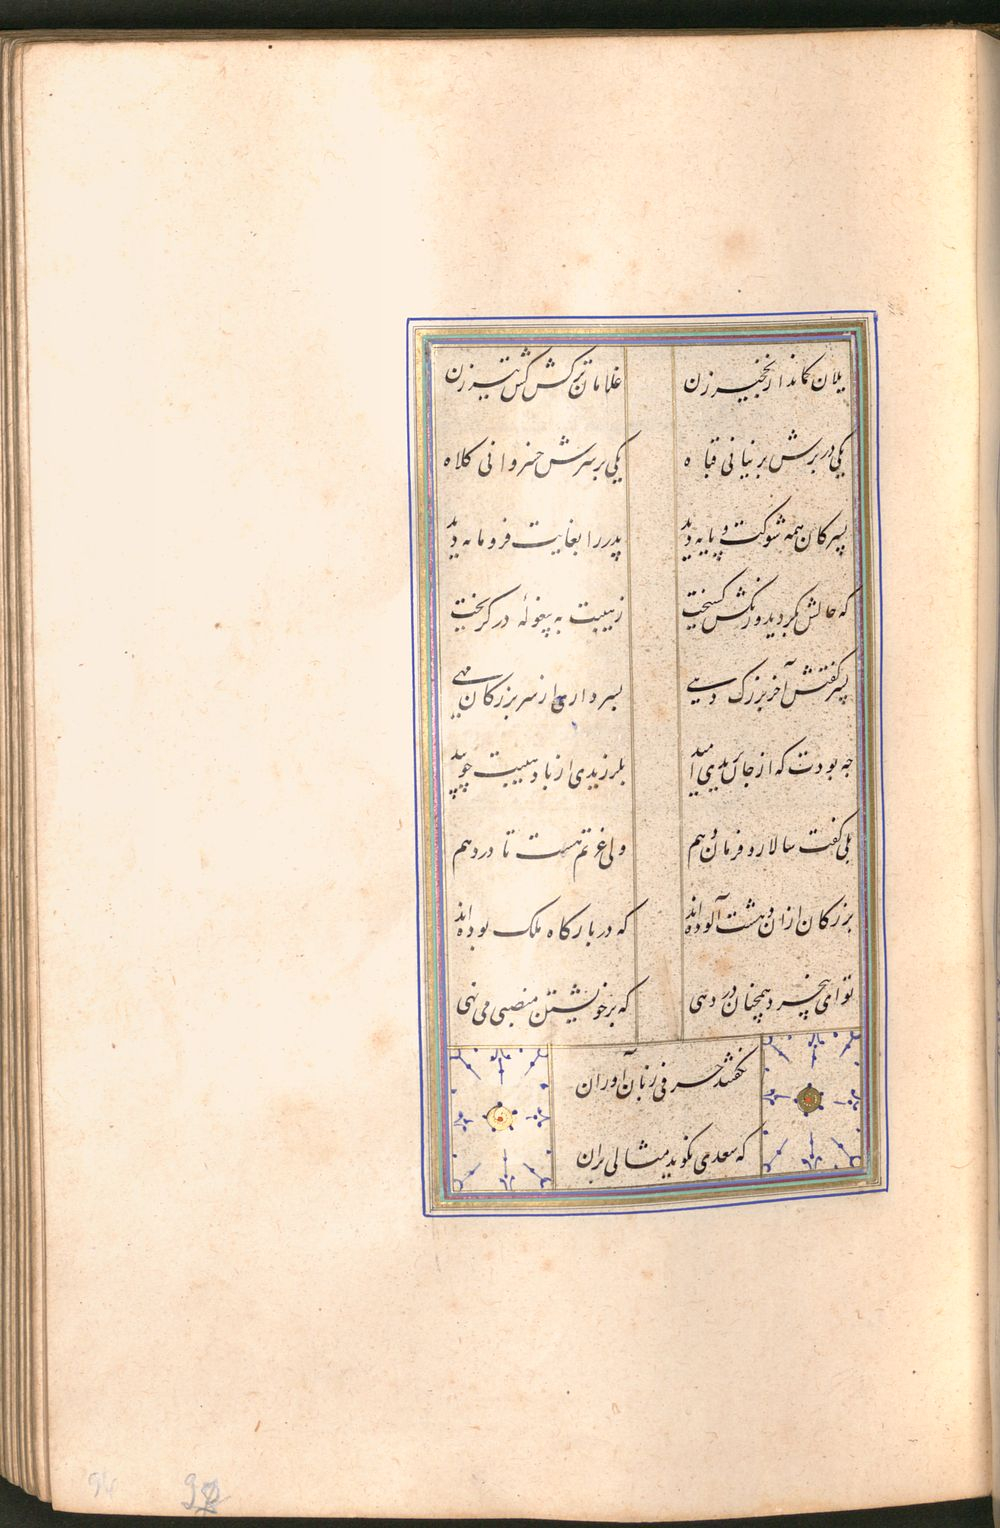 یلان کماندار نخجیر زن غلامان ترکش کش تیر زن
یکی در برش پرنیانی قباه یکی بر سرش خسروانی کلاه
پسر کان همه شوکت و پایه دید پدر را بغایت فرومایه دید
که حالش بگردید و رنگش بریخت ز هیبت به پیغوله در گریخت
پسر گفتش آخر بزرگ دهی بسرداری از سر بزرگان مهی
چه بودت که از جان بریدی امید بلرزیدی از باد هیبت چو بید
بلی گفت سالار و فرمان دهم ولی عزتم هست تا در دهم
بزرگان ازان دهشت آلوده اند که در بارگاه ملک بوده اند
تو ای بیخبر همچنان در دهی که بر خویشتن منصبی می نهی
نگفتند حرفی زبان آوران
که سعدی نگوید مثالی بران